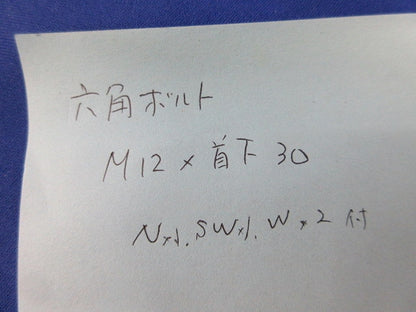 六角ボルト
M12×首下30
N×1.SW×1.W×2付